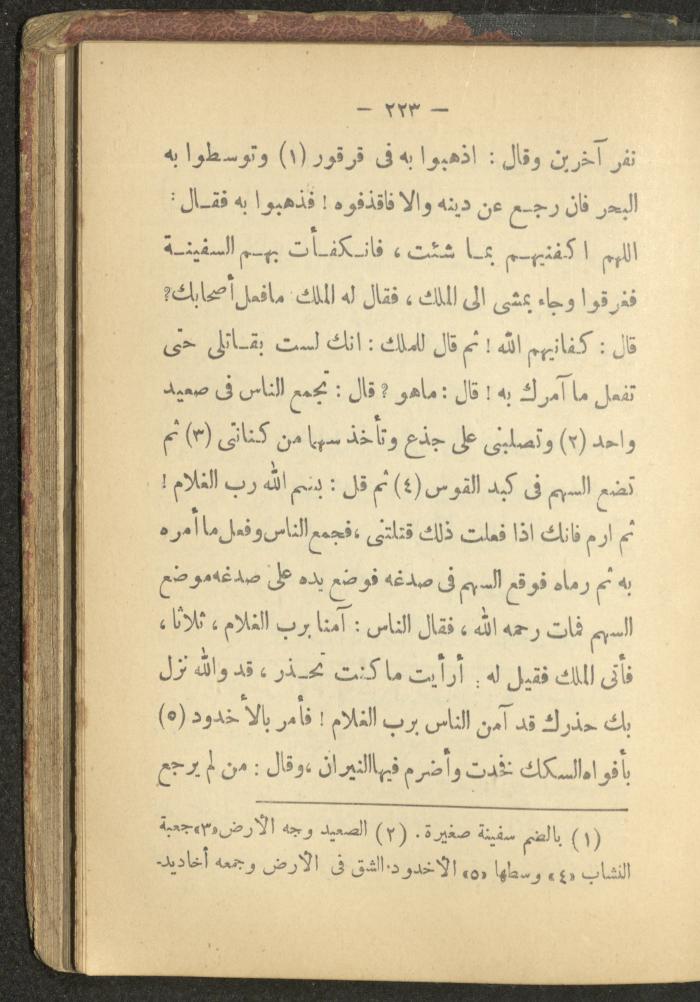 — ٢٢٣ —
نفر آخرين وقال : اذهبوا به فى قرقور (١) وتوسطوا به
البحر فان رجـع عن دينه والا فاقذفوه ! فذهبوا به فقـال :
اللهم اكفنيهـم بمـا شئت ، فانـكفـأت بهـم السفينـة
فغرقوا وجاء يمشى الى الملك ، فقال له الملك مافعل أصحابك؟
قال : كفانيهم الله ! ثم قال للملك : انك لست بقـاتلى حتى
تفعل ما آمرك به ! قال : ماهو ؟ قال : تجمع الناس فى صعيد
واحد (٢) وتصلبنى على جذع وتأخذ سهما من كنانتى (٣) ثم
تضع السهم فى كبد القوس (٤) ثم قل : بسم الله رب الغلام !
ثم ارم فانك اذا فعلت ذلك قتلتنى ،فجمع الناس وفعل ما أمره
به ثم رماه فوقع السهم فى صدغه فوضع يده على صدغه موضع
السهم فمات رحمه الله ، فقال الناس : آمنا برب الغلام ، ثلاثا ،
فأتى الملك فقيل له : أرأيت ما كنت تحـذر ، قد والله نزل
بك حذرك قد آمن الناس برب الغلام ! فأمر بالأخدود (٥)
بأفواه السكك فخدت وأضرم فيها النيران ،وقال : من لم يرجع
(١) بالضم سفينة صغيرة . (٢) الصعيد وجه الارض «٣» جعبة
النشاب «٤» وسطها «٥» الاخدود · الشق فى الارض وجمعه أخاديد-